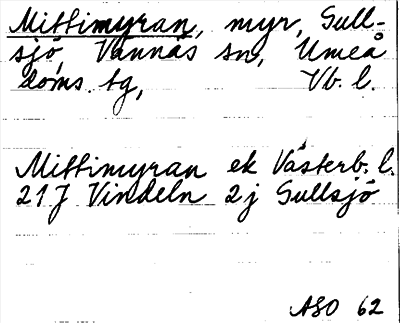 Mittimyran, myr, Gull-
sjö, Vännäs sn, Umeå
doms. tg, Vb. l.
Mittimyran ek Västerb. l.
21J Vindeln 2j Gullsjö
ASO 62